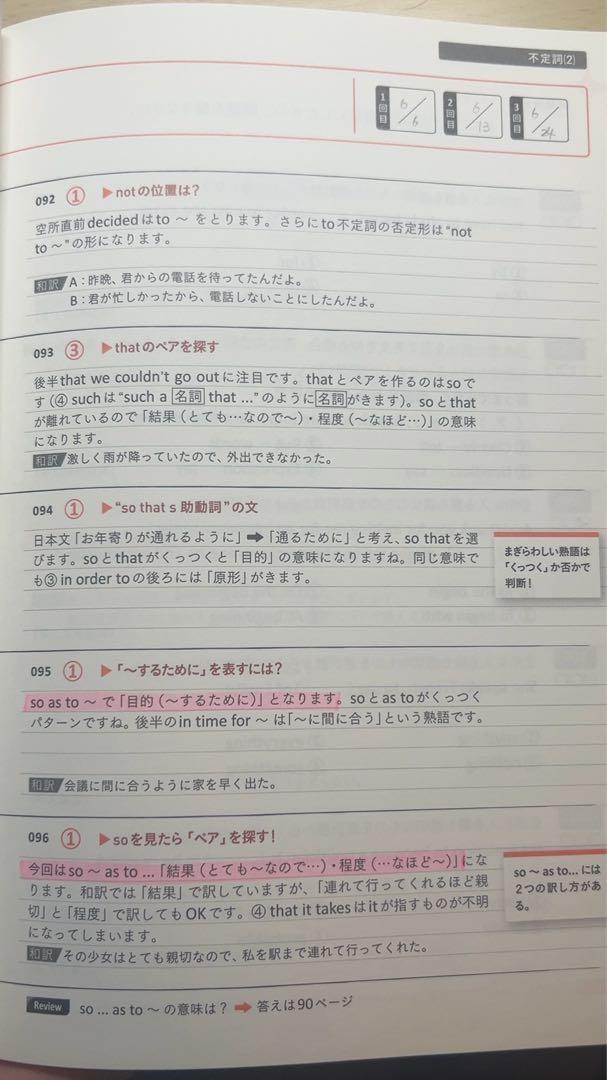 不定詞(2)
1回目 6/6
2回目 6/13
3回目 6/24
092 ① ▶notの位置は?
空所直前decidedはto ～ をとります。さらにto不定詞の否定形は“not
to ～”の形になります。
和訳 A:昨晩、君からの電話を待ってたんだよ。
B:君が忙しかったから、電話しないことにしたんだよ。
093 ③ ▶thatのペアを探す
後半that we couldn't go outに注目です。thatとペアを作るのはsoで
す(④ suchは“such a 名詞 that ...”のように名詞がきます)。soとthat
が離れているので「結果(とても…なので～)・程度(～なほど…)」の意味
になります。
和訳 激しく雨が降っていたので、外出できなかった。
094 ① ▶“so that s 助動詞”の文
日本文「お年寄りが通れるように」➡「通るために」と考え、so thatを選
びます。soとthatがくっつくと「目的」の意味になりますね。同じ意味で
も③ in order toの後ろには「原形」がきます。
まぎらわしい熟語は
「くっつく」か否かで
判断!
095 ① ▶「～するために」を表すには?
so as to ～ で「目的(～するために)」となります。soとas toがくっつく
パターンですね。後半のin time for ～ は「～に間に合う」という熟語です。
和訳 会議に間に合うように家を早く出た。
096 ① ▶soを見たら「ペア」を探す!
今回はso ～ as to ... 「結果(とても～なので…)・程度(…なほど～)」にな
ります。和訳では「結果」で訳していますが、「連れて行ってくれるほど親
切」と「程度」で訳してもOKです。④ that it takesはitが指すものが不明
になってしまいます。
和訳 その少女はとても親切なので、私を駅まで連れて行ってくれた。
so ～ as to... には
2つの訳し方があ
る。
Review so ... as to ～ の意味は? ➡ 答えは90ページ